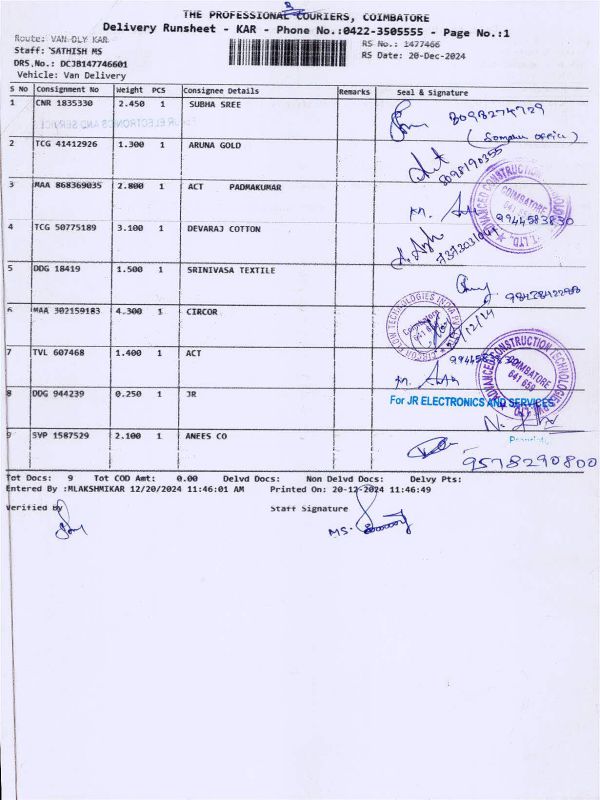 THE PROFESSIONAL COURIERS, COIMBATORE
Delivery Runsheet - KAR - Phone No.:0422-3505555 - Page No.:1
Route: VAN DLY KAR
RS No.: 1477466
Staff: SATHISH MS
RS Date: 20-Dec-2024
DRS.No.: DCJB147746601
Vehicle: Van Delivery
S No Consignment No Weight PCS Consignee Details Remarks Seal & Signature
1 CNR 1835330 2.450 1 SUBHA SREE 8098274729
2 TCG 41412926 1.300 1 ARUNA GOLD 8098190355
3 MAA 868369035 2.800 1 ACT PADMAKUMAR 9944583830
4 TCG 50775189 3.100 1 DEVARAJ COTTON
5 DDG 18419 1.500 1 SRINIVASA TEXTILE
6 MAA 302159183 4.300 1 CIRCOR
7 TVL 607468 1.400 1 ACT
8 DDG 944239 0.250 1 JR
For JR ELECTRONICS AND SERVICES
9 SYP 1587529 2.100 1 ANEES CO
9578290800
Tot Docs: 9 Tot COD Amt: 0.00 Delvd Docs: Non Delvd Docs: Delvy Pts:
Entered By :MLAKSHMIKAR 12/20/2024 11:46:01 AM Printed On: 20-12-2024 11:46:49
Verified By
Staff Signature
MS.